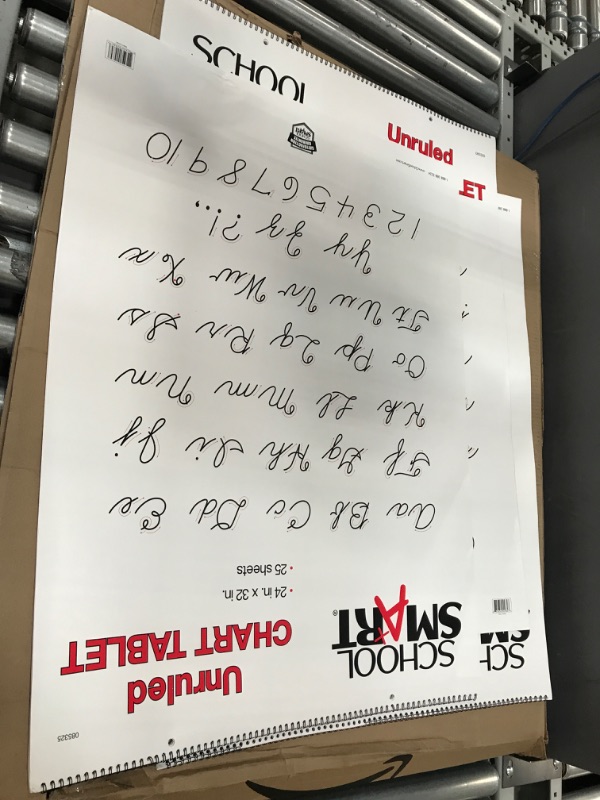 085325
SCHOOL
SMART®
Unruled
CHART TABLET
• 24 in. x 32 in.
• 25 sheets
Aa Bb Cc Dd Ee
Ff Gg Hh Ii Jj
Kk Ll Mm Nn
Oo Pp Qq Rr Ss
Tt Uu Vv Ww Xx
Yy Zz ?!.,
1 2 3 4 5 6 7 8 9 10
SCH
SM
SCHOOL
Unruled
ET